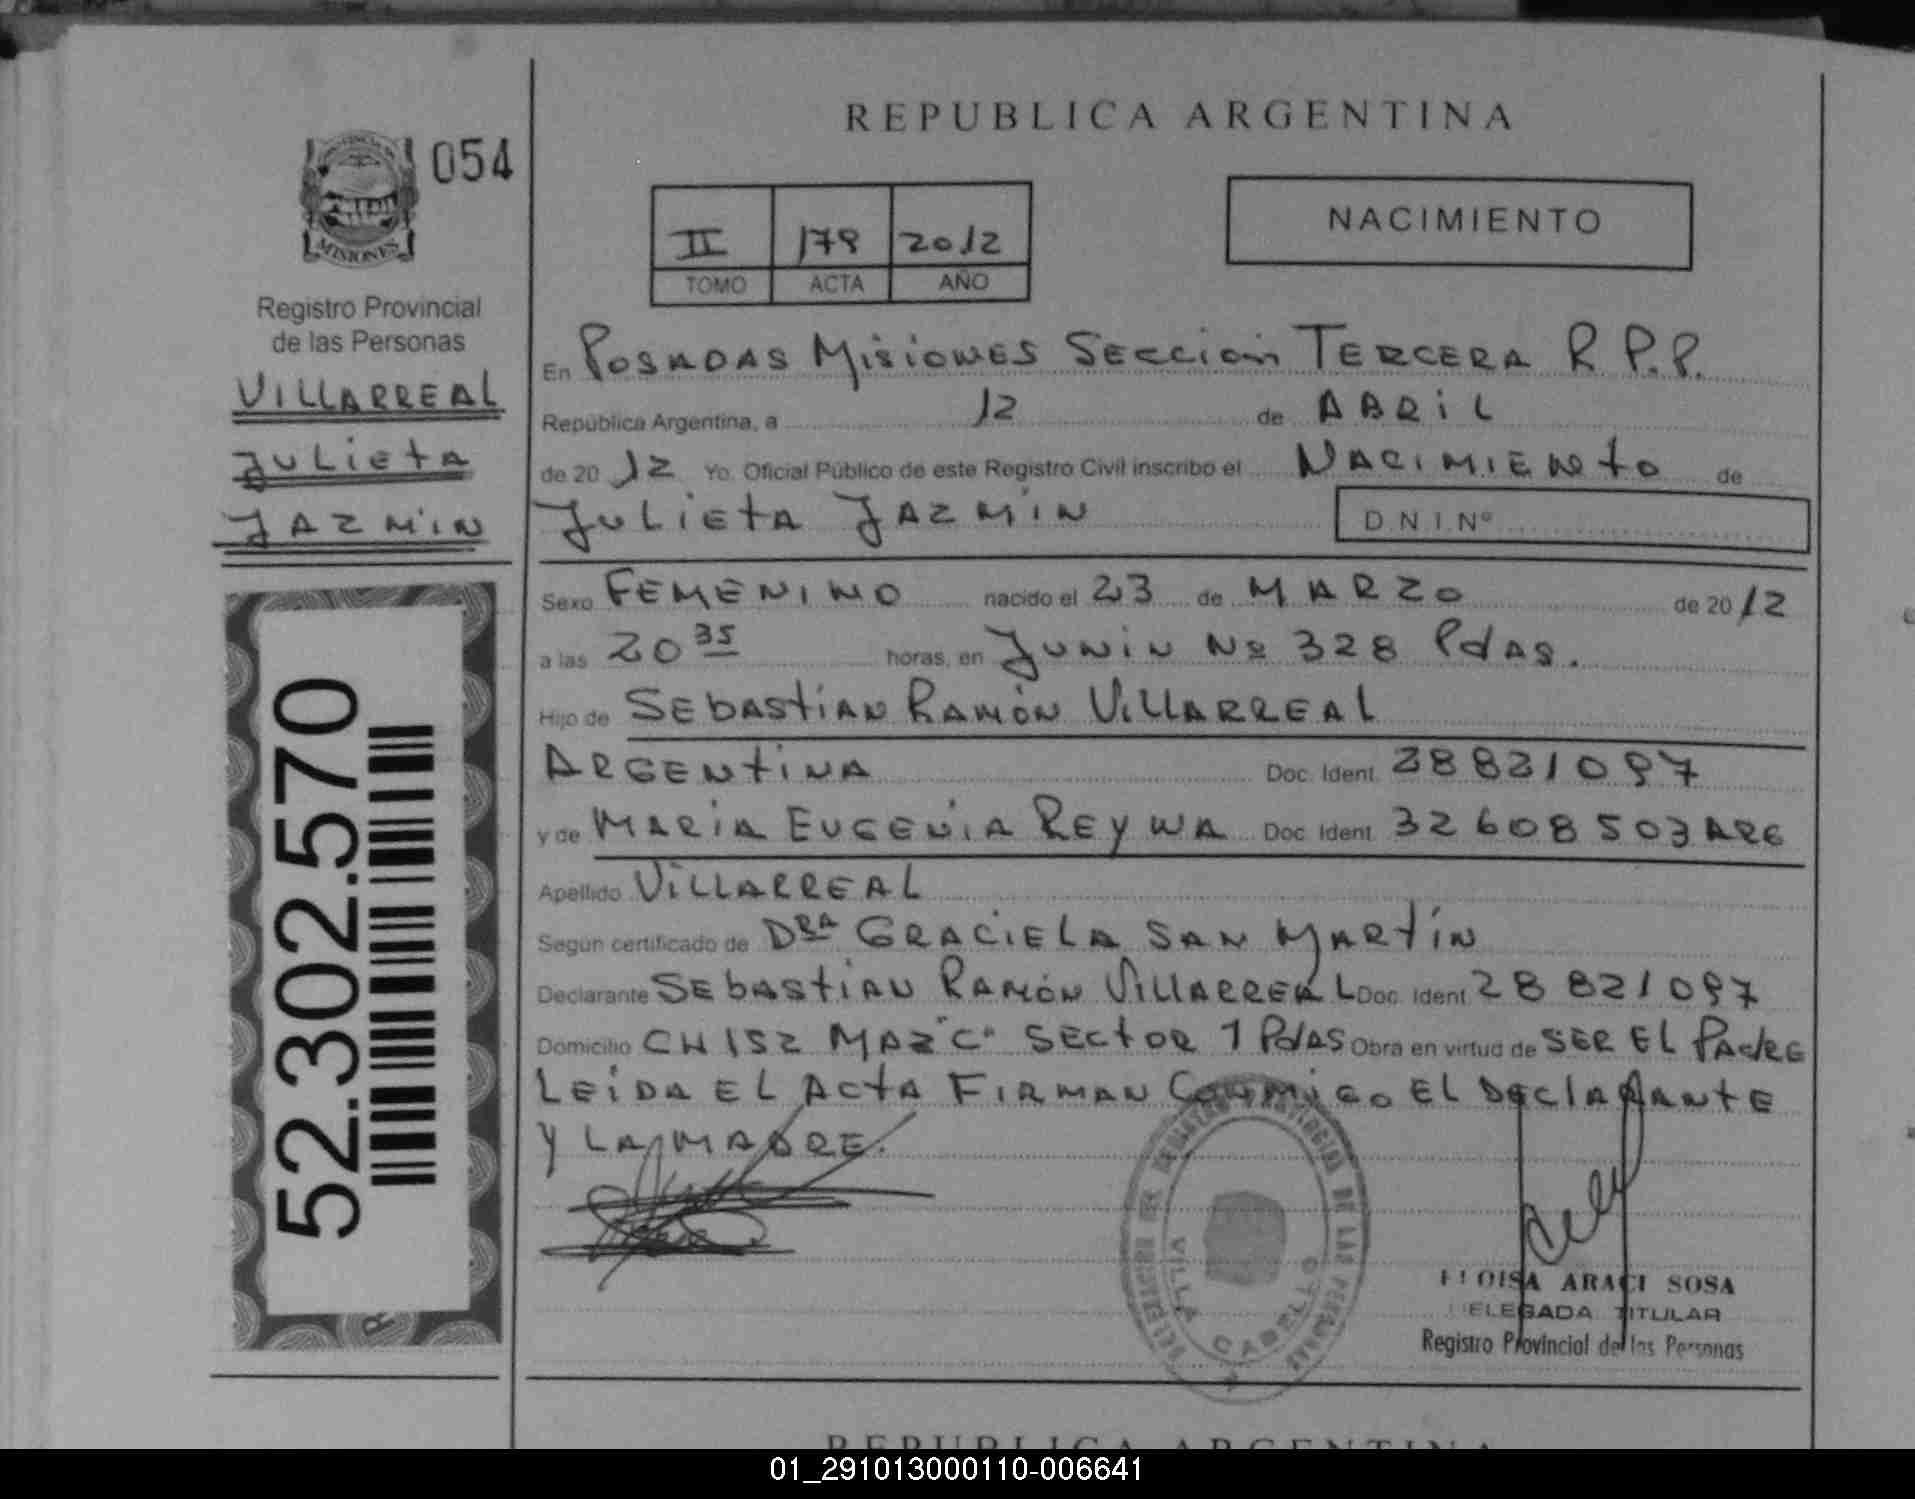 REPUBLICA ARGENTINA
PROVINCIA DE
MISIONES
054
Registro Provincial
de las Personas
VILLARREAL
JULIETA
JAZMÍN
52.302.570
II 178 2012
TOMO ACTA AÑO
NACIMIENTO
En POSADAS MISIONES SECCION TERCERA R.P.P.
República Argentina, a 12 de ABRIL
de 20 12 Yo. Oficial Público de este Registro Civil inscribo el NACIMIENTO de
JULIETA JAZMIN D.N.I.Nº
Sexo FEMENINO nacido el 23 de MARZO de 20 12
a las 20 35 horas, en JUNIN Nº 328 PdAS.
Hijo de SEBASTIAN RAMÓN VILLARREAL
ARGENTINA Doc. Ident. 28821097
y de MARIA EUGENIA REYWA Doc. Ident. 32608503 ARG
Apellido VILLARREAL
Según certificado de DRA GRACIELA SAN MARTÍN
Declarante SEBASTIAN RAMÓN VILLARREAL Doc. Ident. 28821097
Domicilio CH 152 MAZ "C" SECTOR 1 PdAS Obra en virtud de SER EL PADRE
LEIDA EL ACTA FIRMAN CONMIGO EL DECLARANTE
Y LA MADRE.
REGISTRO PROVINCIAL DE LAS PERSONAS
VILLA CABELLO
ELOISA ARACI SOSA
DELEGADA TITULAR
Registro Provincial de las Personas
REPUBLICA ARGENTINA
01_291013000110-006641